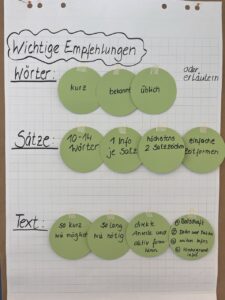 Wichtige Empfehlungen
Wörter:
kurz
bekannt
üblich
oder
erläutern
Sätze:
10-14
Wörter
1 Info
je Satz
höchstens
2 Satzzeichen
einfache
Zeitformen
Text:
so kurz
wie möglich
so lang
wie nötig
direkte
Anrede und
aktiv
① Botschaft
②
③
④ Hintergrund-
info